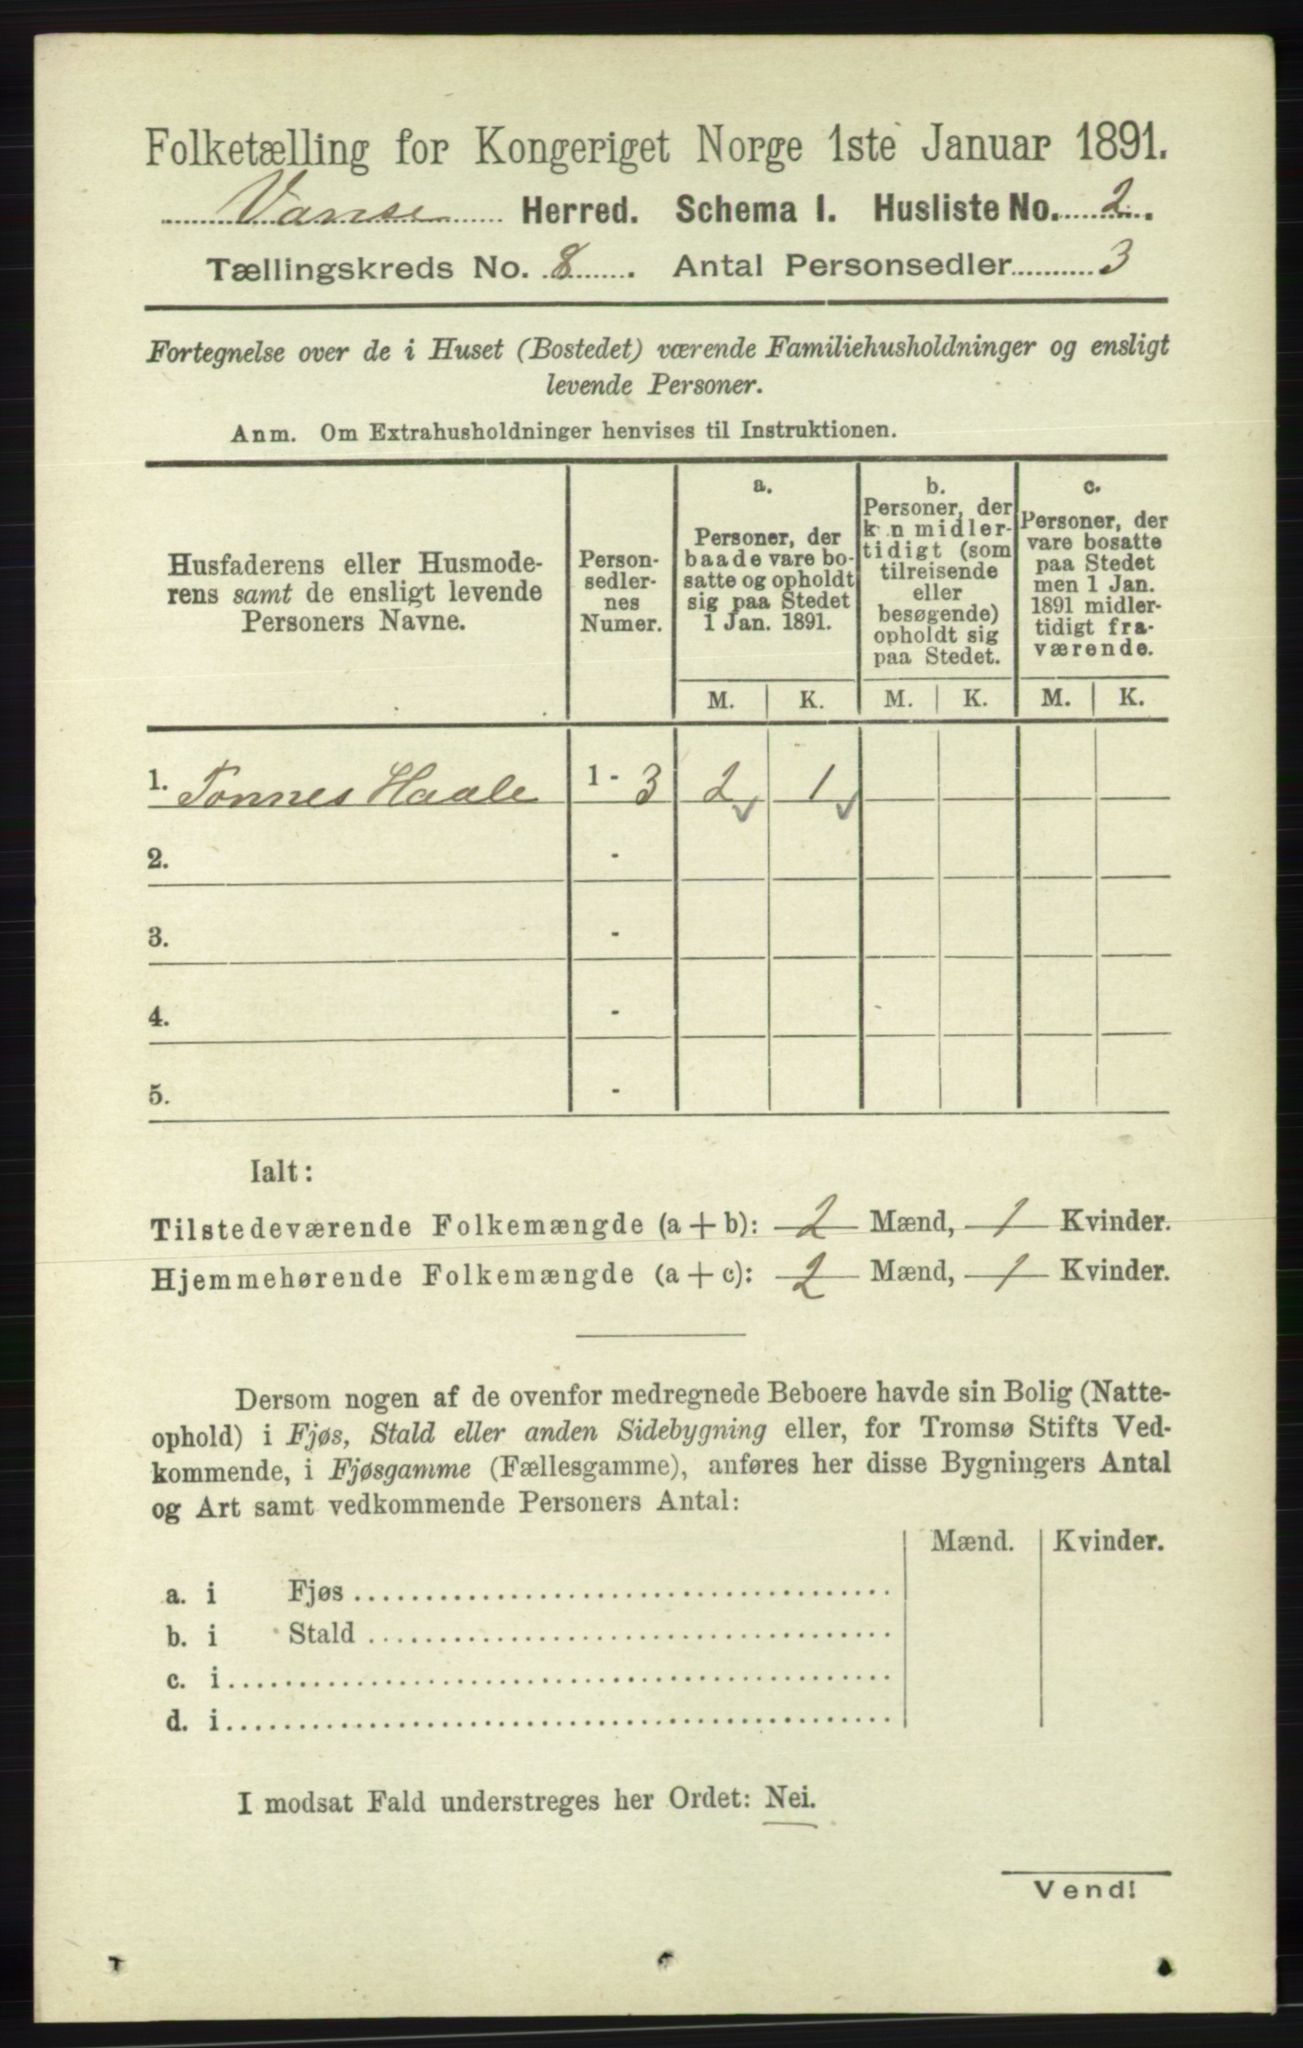 Folketælling for Kongeriget Norge 1ste Januar 1891.
Vanse Herred. Schema I. Husliste No. 2.
Tællingskreds No. 8. Antal Personsedler 3
Fortegnelse over de i Huset (Bostedet) værende Familiehusholdninger og ensligt
levende Personer.
Anm. Om Extrahusholdninger henvises til Instruktionen.
Husfaderens eller Husmode-
rens samt de ensligt levende
Personers Navne.
Person-
sedler-
nes
Numer.
a.
Personer, der
baade vare bo-
satte og opholdt
sig paa Stedet
1 Jan. 1891.
b.
Personer, der
kun midler-
tidigt (som
tilreisende
eller
besøgende)
opholdt sig
paa Stedet.
c.
Personer, der
vare bosatte
paa Stedet
men 1 Jan.
1891 midler-
tidigt fra-
værende.
M. K. M. K. M. K.
1. Tønnes Haale 1 - 3 2 1
2. -
3. -
4. -
5. -
Ialt:
Tilstedeværende Folkemængde (a + b): 2 Mænd, 1 Kvinder.
Hjemmehørende Folkemængde (a + c): 2 Mænd, 1 Kvinder.
Dersom nogen af de ovenfor medregnede Beboere havde sin Bolig (Natte-
ophold) i Fjøs, Stald eller anden Sidebygning eller, for Tromsø Stifts Ved-
kommende, i Fjøsgamme (Fællesgamme), anføres her disse Bygningers Antal
og Art samt vedkommende Personers Antal:
Mænd. Kvinder.
a. i Fjøs
b. i Stald
c. i
d. i
I modsat Fald understreges her Ordet: Nei.
Vend!